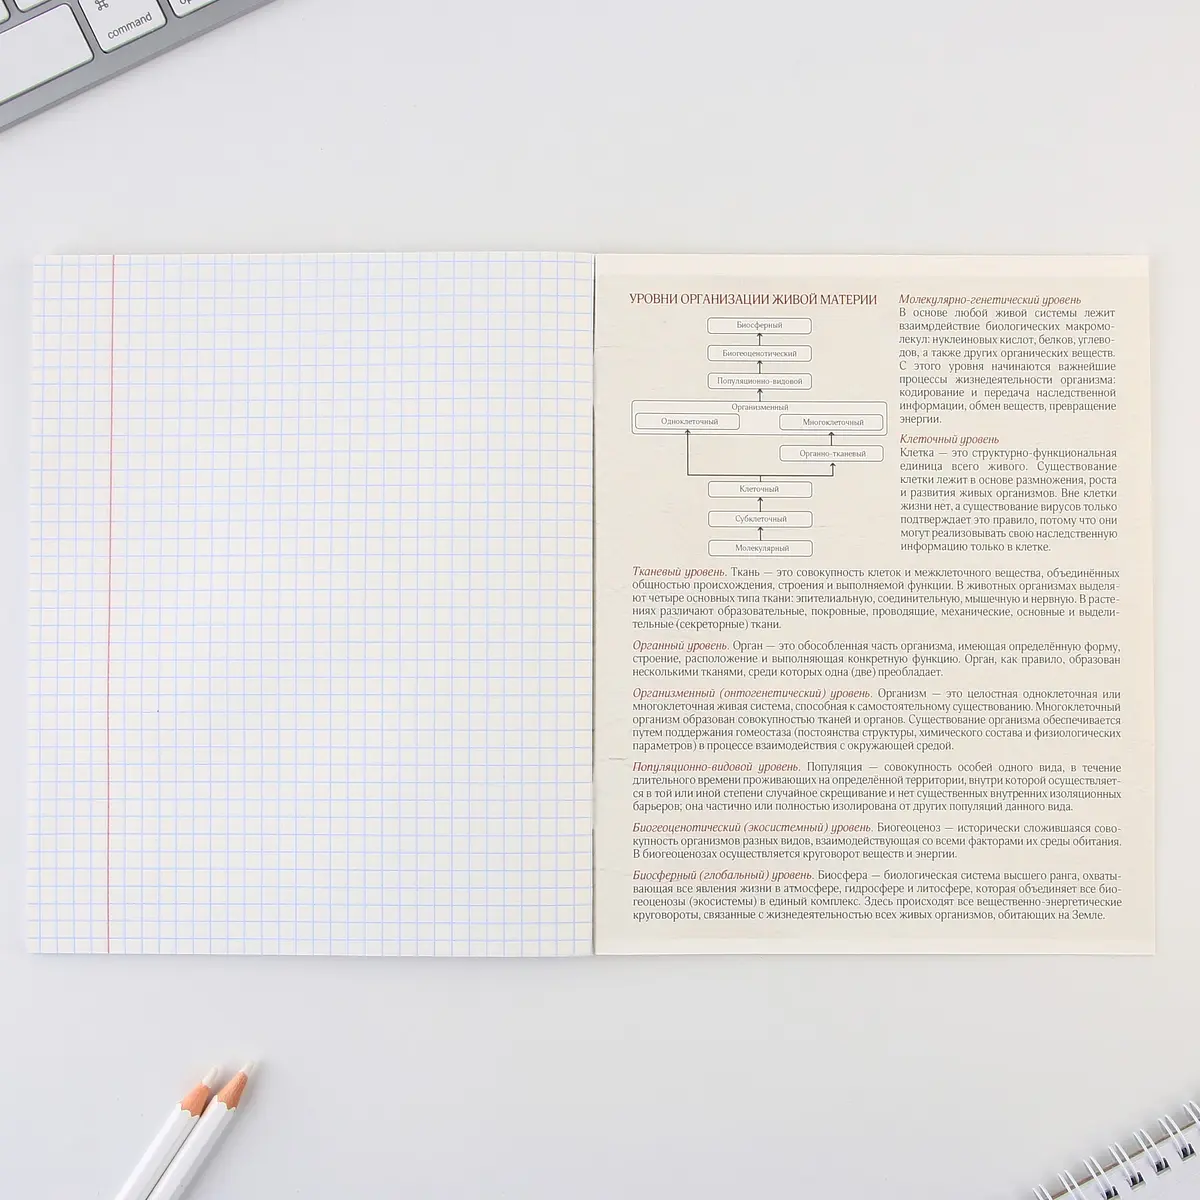 ⌘
command
УРОВНИ ОРГАНИЗАЦИИ ЖИВОЙ МАТЕРИИ
Биосферный
Биогеоценотический
Популяционно-видовой
Организменный
Одноклеточный
Многоклеточный
Органно-тканевый
Клеточный
Субклеточный
Молекулярный
Молекулярно-генетический уровень
В основе любой живой системы лежит
взаимодействие биологических макромо-
лекул: нуклеиновых кислот, белков, углево-
дов, а также других органических веществ.
С этого уровня начинаются важнейшие
процессы жизнедеятельности организма:
кодирование и передача наследственной
информации, обмен веществ, превращение
энергии.
Клеточный уровень
Клетка — это структурно-функциональная
единица всего живого. Существование
клетки лежит в основе размножения, роста
и развития живых организмов. Вне клетки
жизни нет, а существование вирусов только
подтверждает это правило, потому что они
могут реализовывать свою наследственную
информацию только в клетке.
Тканевый уровень. Ткань — это совокупность клеток и межклеточного вещества, объединённых
общностью происхождения, строения и выполняемой функции. В животных организмах выделя-
ют четыре основных типа ткани: эпителиальную, соединительную, мышечную и нервную. В расте-
ниях различают образовательные, покровные, проводящие, механические, основные и выдели-
тельные (секреторные) ткани.
Органный уровень. Орган — это обособленная часть организма, имеющая определённую форму,
строение, расположение и выполняющая конкретную функцию. Орган, как правило, образован
несколькими тканями, среди которых одна (две) преобладает.
Организменный (онтогенетический) уровень. Организм — это целостная одноклеточная или
многоклеточная живая система, способная к самостоятельному существованию. Многоклеточный
организм образован совокупностью тканей и органов. Существование организма обеспечивается
путем поддержания гомеостаза (постоянства структуры, химического состава и физиологических
параметров) в процессе взаимодействия с окружающей средой.
Популяционно-видовой уровень. Популяция — совокупность особей одного вида, в течение
длительного времени проживающих на определённой территории, внутри которой осуществляет-
ся в той или иной степени случайное скрещивание и нет существенных внутренних изоляционных
барьеров; она частично или полностью изолирована от других популяций данного вида.
Биогеоценотический (экосистемный) уровень. Биогеоценоз — исторически сложившаяся сово-
купность организмов разных видов, взаимодействующая со всеми факторами их среды обитания.
В биогеоценозах осуществляется круговорот веществ и энергии.
Биосферный (глобальный) уровень. Биосфера — биологическая система высшего ранга, охваты-
вающая все явления жизни в атмосфере, гидросфере и литосфере, которая объединяет все био-
геоценозы (экосистемы) в единый комплекс. Здесь происходят все вещественно-энергетические
круговороты, связанные с жизнедеятельностью всех живых организмов, обитающих на Земле.